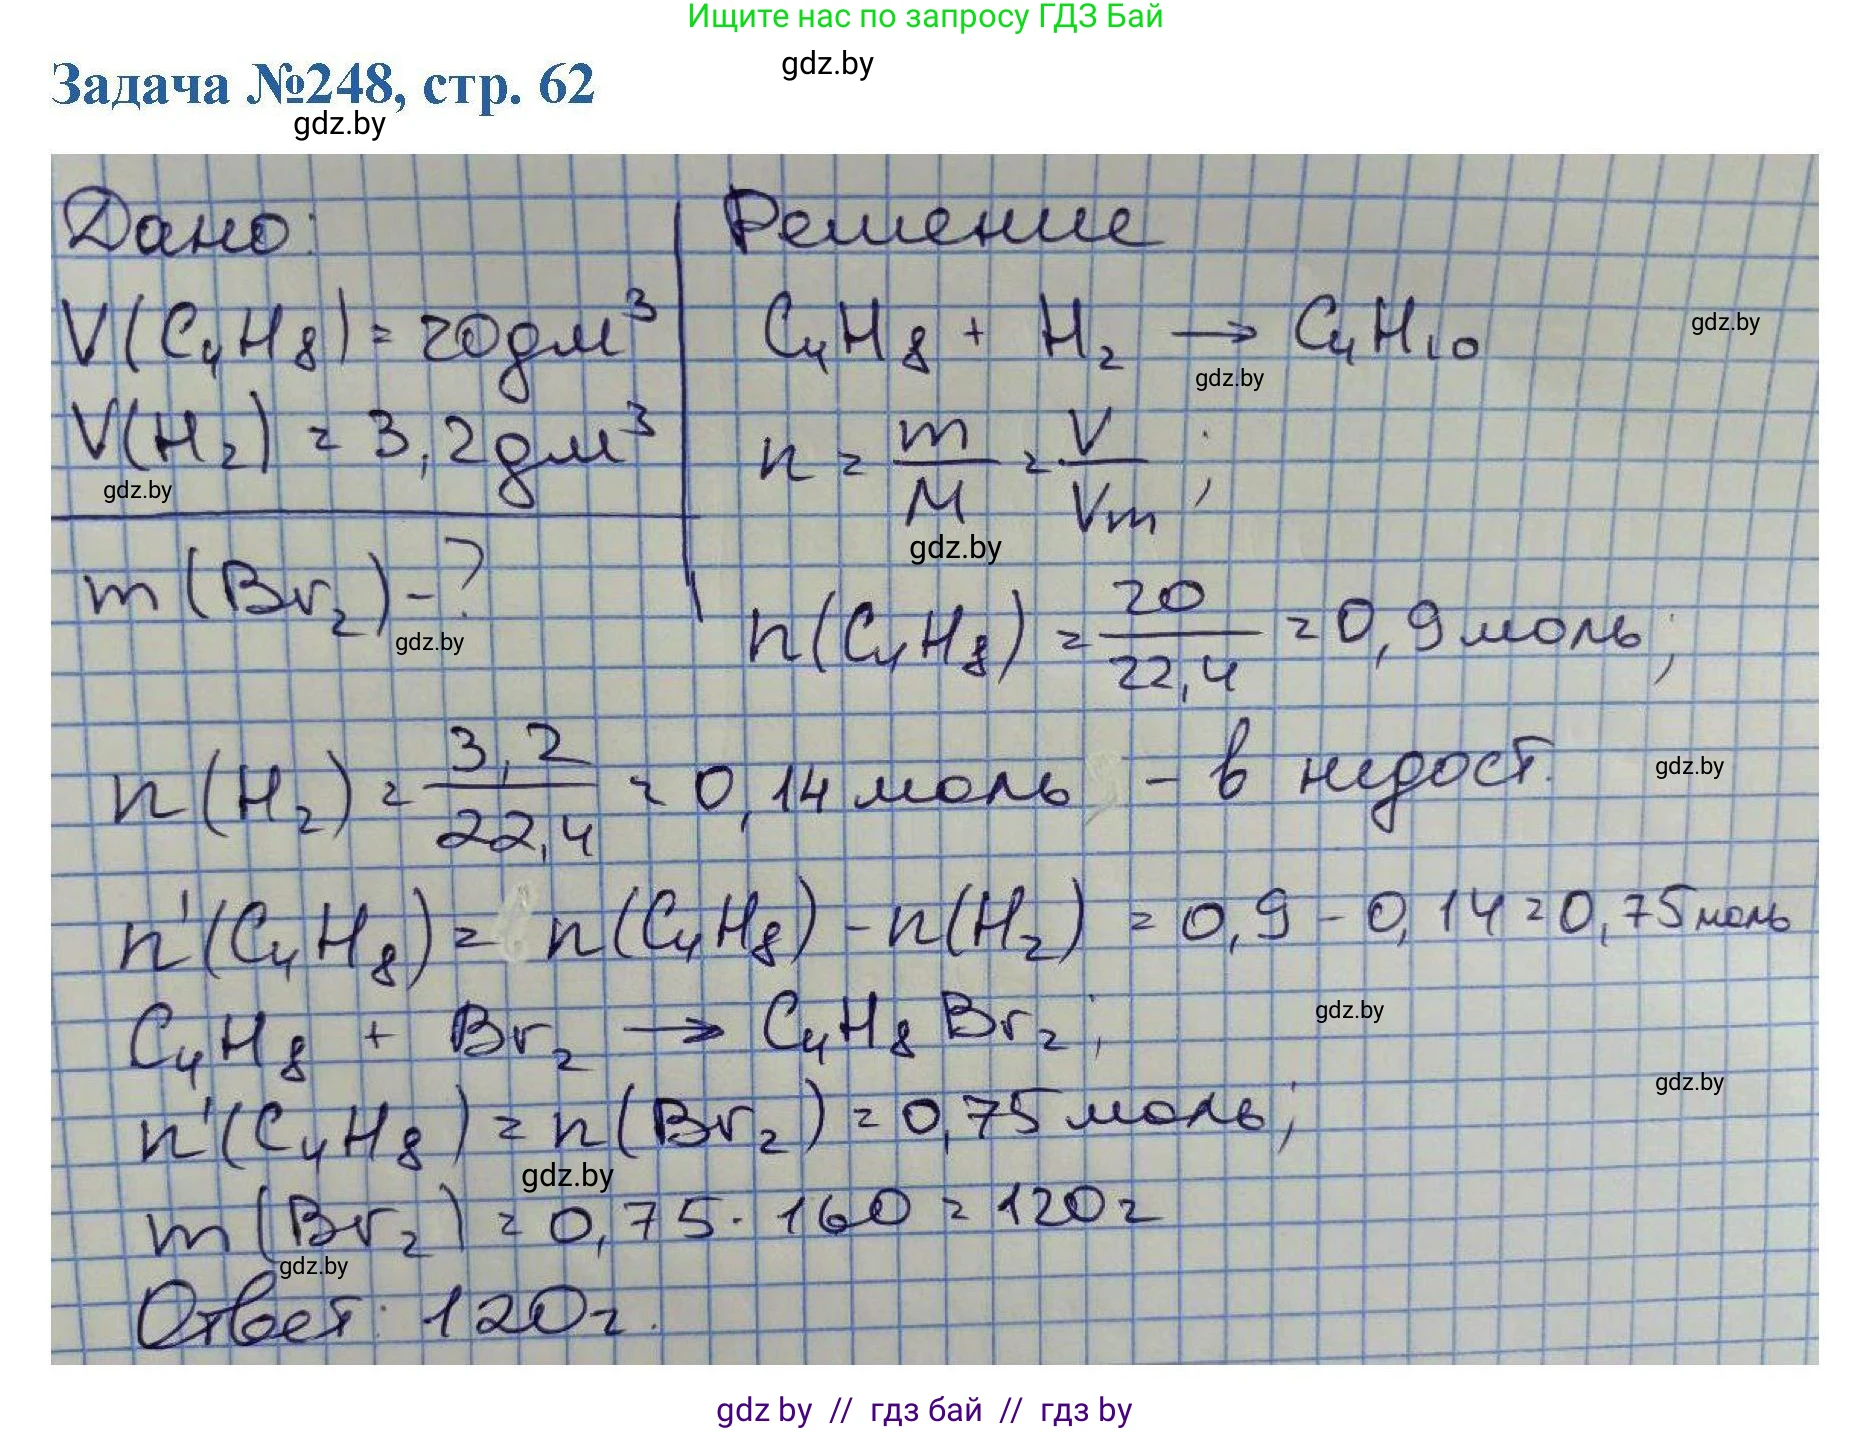 Ищите нас по запросу ГДЗ Бай
gdz.by
Задача №248, стр. 62
gdz.by
Дано:
V(C₄H₈) = 20 дм³
V(H₂) = 3,2 дм³
gdz.by
m(Br₂) - ?
gdz.by
Решение
C₄H₈ + H₂ → C₄H₁₀
gdz.by
gdz.by
n = m/M = V/Vm;
gdz.by
n(C₄H₈) = 20/22,4 = 0,9 моль;
n(H₂) = 3,2/22,4 = 0,14 моль - в недост.
gdz.by
n'(C₄H₈) = n(C₄H₈) - n(H₂) = 0,9 - 0,14 = 0,75 моль
C₄H₈ + Br₂ → C₄H₈Br₂;
gdz.by
gdz.by
n'(C₄H₈) = n(Br₂) = 0,75 моль;
gdz.by
m(Br₂) = 0,75 · 160 = 120 г
gdz.by
Ответ: 120 г.
gdz by // гдз бай // гдз by